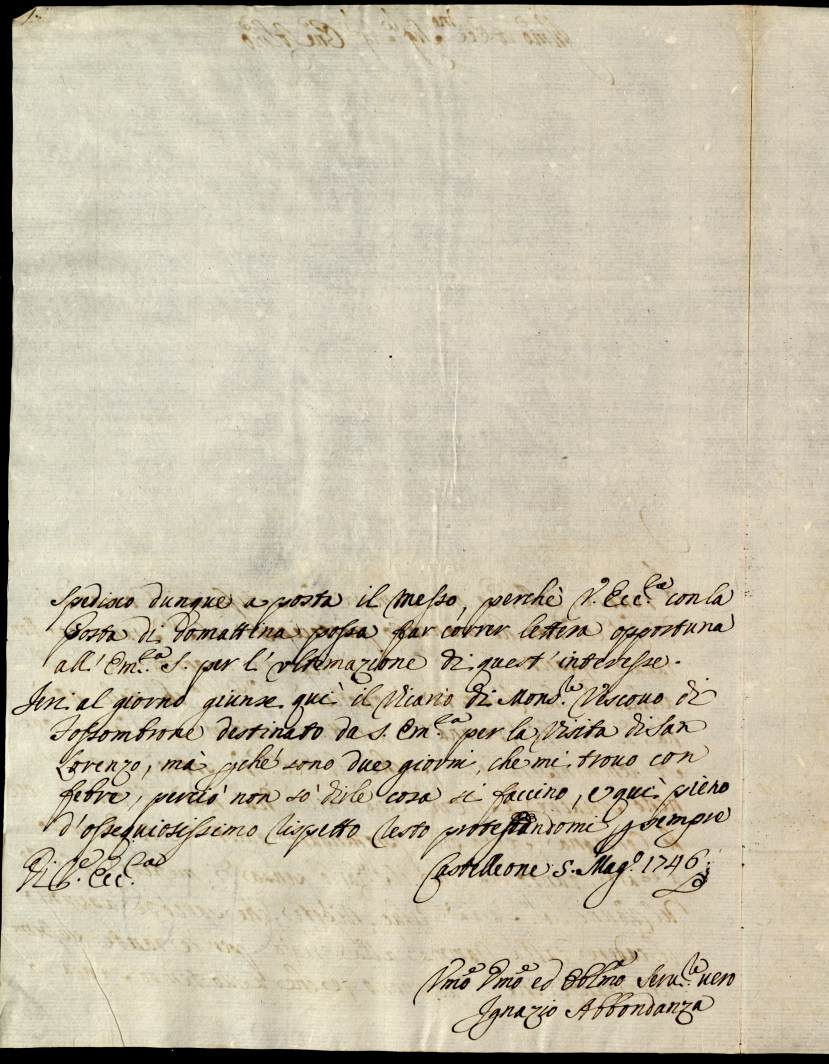 Spedisco dunque a posta il Messo, perchè V. Ecc.za con la
Posta di domattina possa far correr lettera opportuna
all' Em.za S. per l' ultimazione di quest' interesse.
Jeri al giorno giunse quì il Vicario di Mons.re Vescovo di
Fossombrone destinato da S. Em.za per la Visita di San
Lorenzo, mà pché sono due giorni, che mi trovo con
febre, perciò non sò dirle cosa si faccino, e quì pieno
d'ossequiosissimo rispetto resto protestandomi p sempre
Di V. Ecc.za
Castelleone 5. Mag.o 1746
Vmo ed Obblmo Serv.re vero
Ignazio Abbondanza